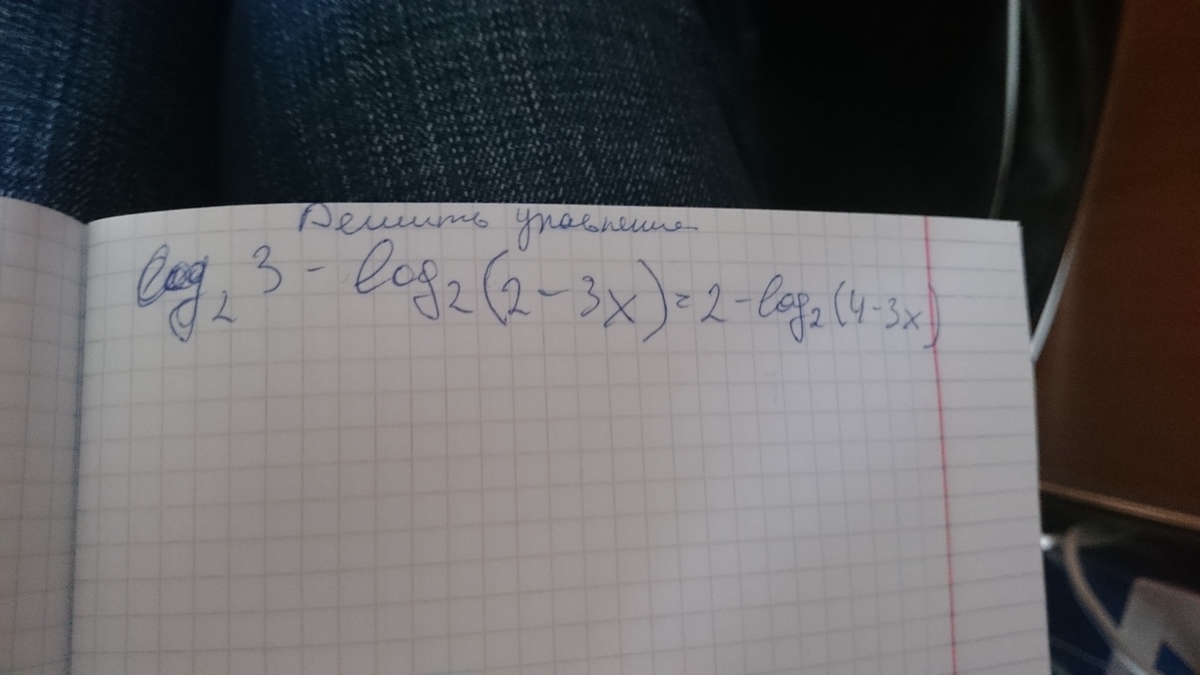 Решить уравнение
log₂ 3 - log₂(2-3x)=2-log₂(4-3x)